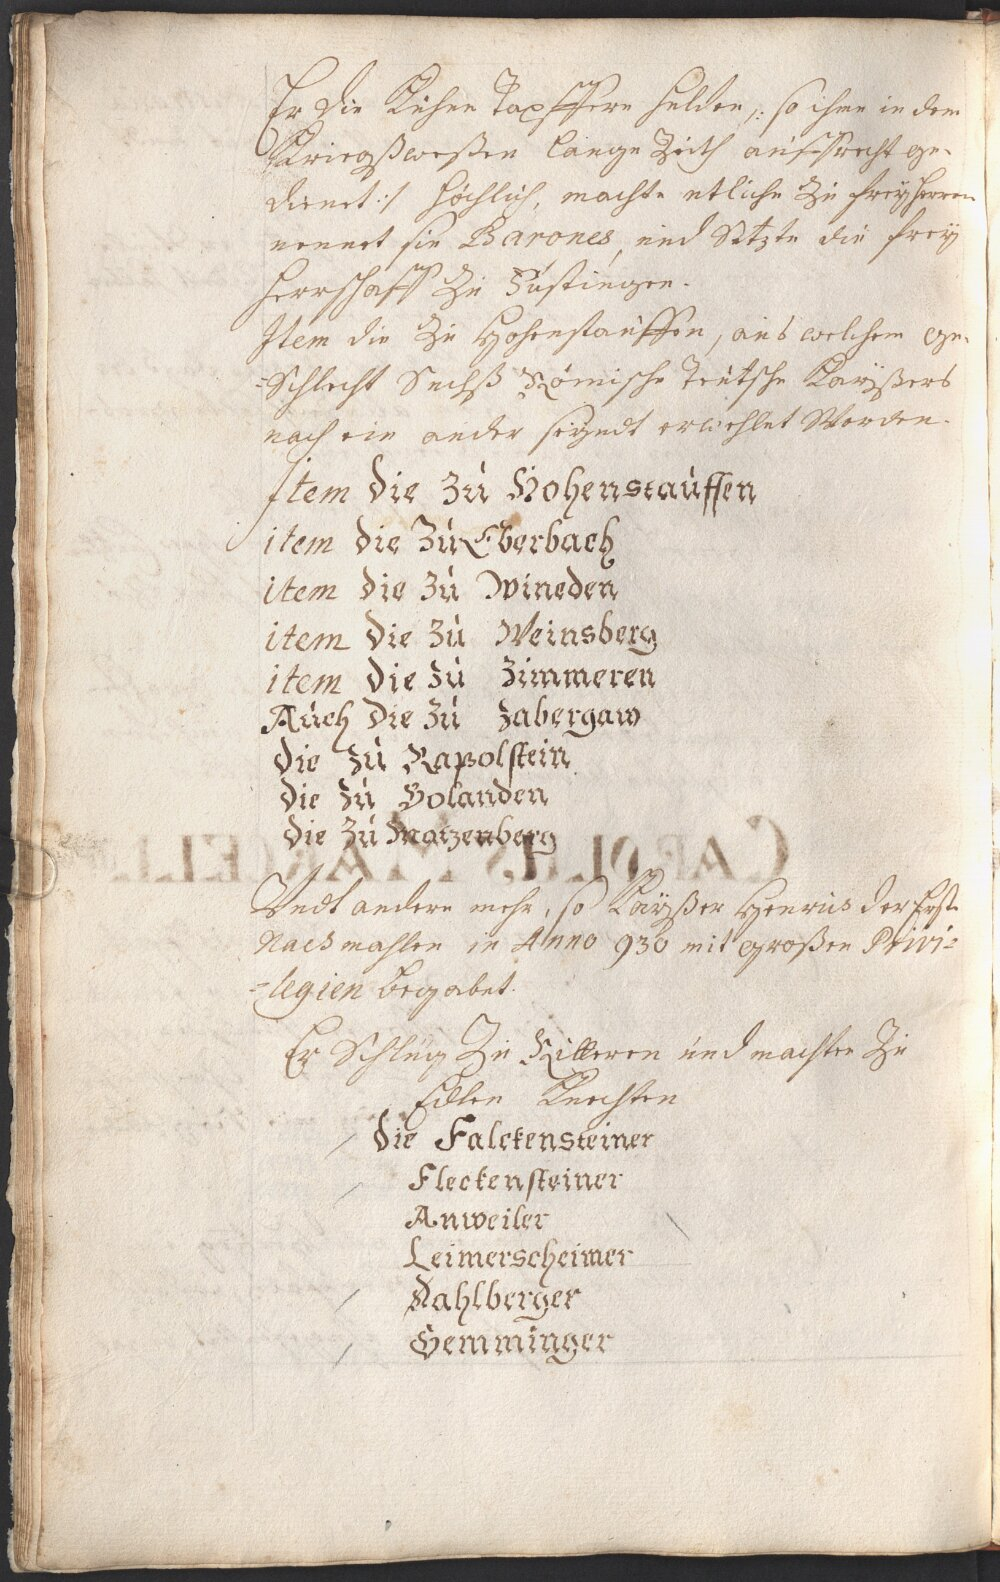 Er die Kühne Tapffere Helden /: so ihme in dem
Kriegßweßen lange Zeith auffrecht ge-
dienet :/ höchlich, machte etliche zu freyherren
nennet sie Barones, und Setzte die frey
herrschafft zu Justingen.
Item die zu Hohenstauffen, aus welchem ge-
=Schlecht Sechß Römische Teütsche Kayßers
nach ein ander seyndt erwehlet Worden.
Item die Zu Hohenstauffen
item die Zu Eberbach
item die Zu Wineden
item die Zu Weinsberg
item die Zu Zimmeren
Auch die Zu Zabergaw
die Zu Rapolstein
die Zu Bolanden
die Zu Matzenberg
Undt andere mehr, so Kayßer Henrius der Erste
Nachmahlen in Anno 930 mit großen Privi=
=legien begabet.
Er Schlug Zu Ritteren und machten Zu
Edlen Knechten
die Falckensteiner
Fleckensteiner
Anweiler
Leimerscheimer
Dahlberger
Gemminger